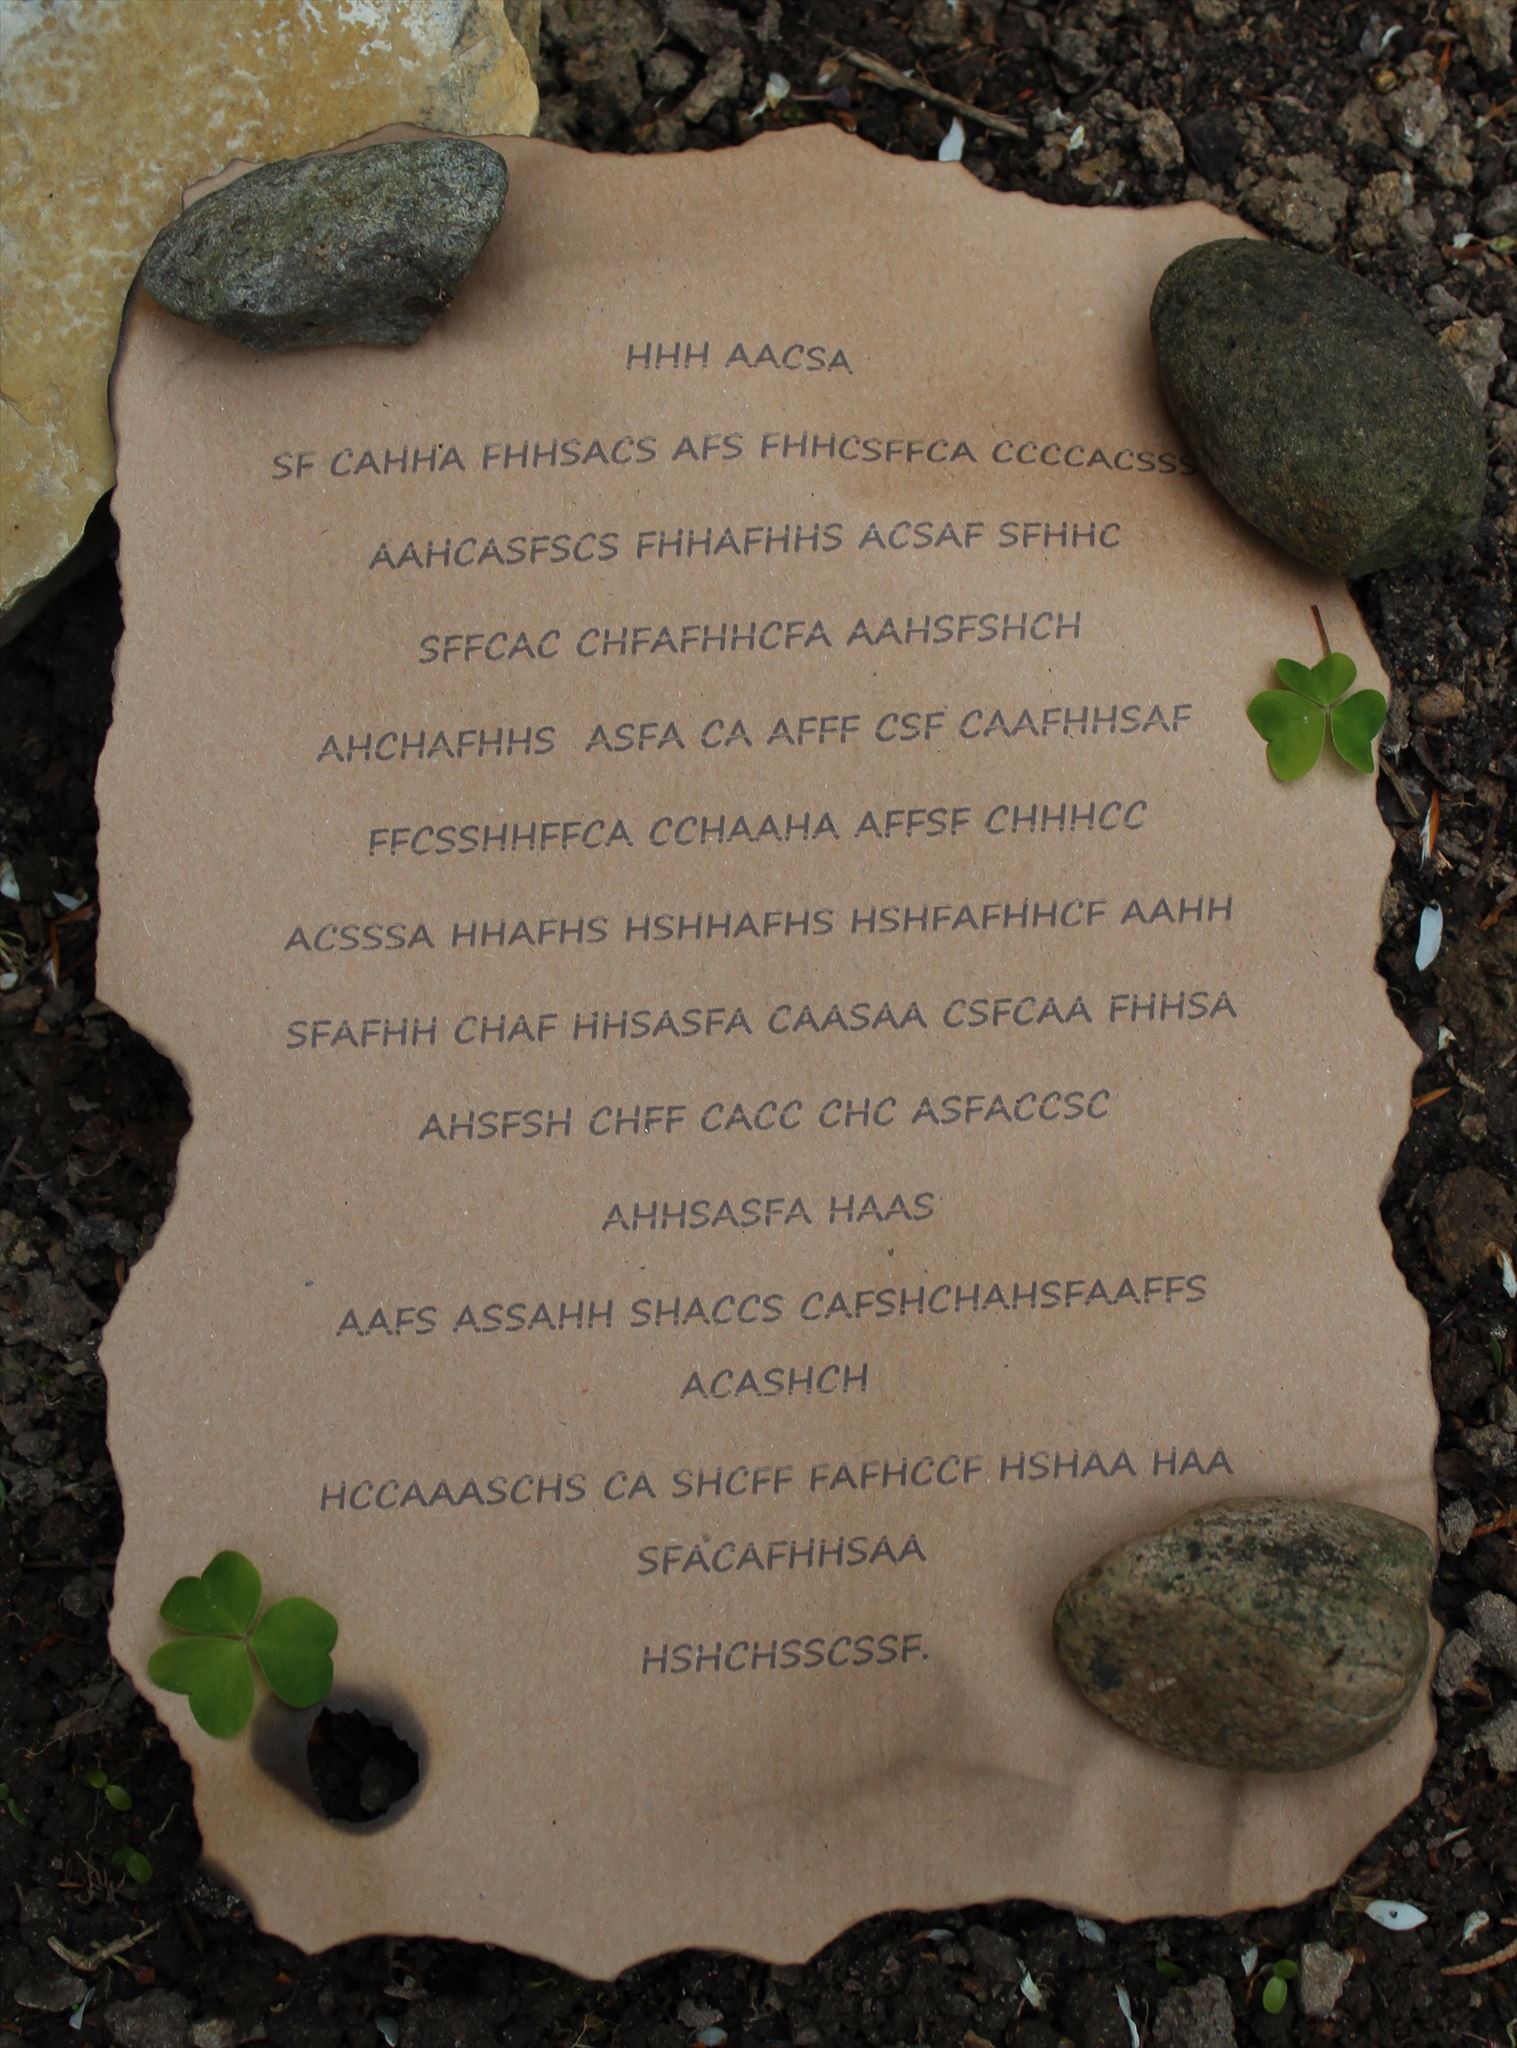 HHH AACSA
SF CAHHA FHHSACS AFS FHHCSFFCA CCCCACSSS
AAHCASFSCS FHHAFHHS ACSAF SFHHC
SFFCAC CHFAFHHCFA AAHSFSHCH
AHCHAFHHS ASFA CA AFFF CSF CAAFHHSAF
FFCSSHHFFCA CCHAAHA AFFSF CHHHCC
ACSSSA HHAFHS HSHHAFHS HSHFAFHHCF AAHH
SFAFHH CHAF HHSASFA CAASAA CSFCAA FHHSA
AHSFSH CHFF CACC CHC ASFACCSC
AHHSASFA HAAS
AAFS ASSAHH SHACCS CAFSHCHAHSFAAFFS
ACASHCH
HCCAAASCHS CA SHCFF FAFHCCF HSHAA HAA
SFACAFHHSAA
HSHCHSSCSSF.